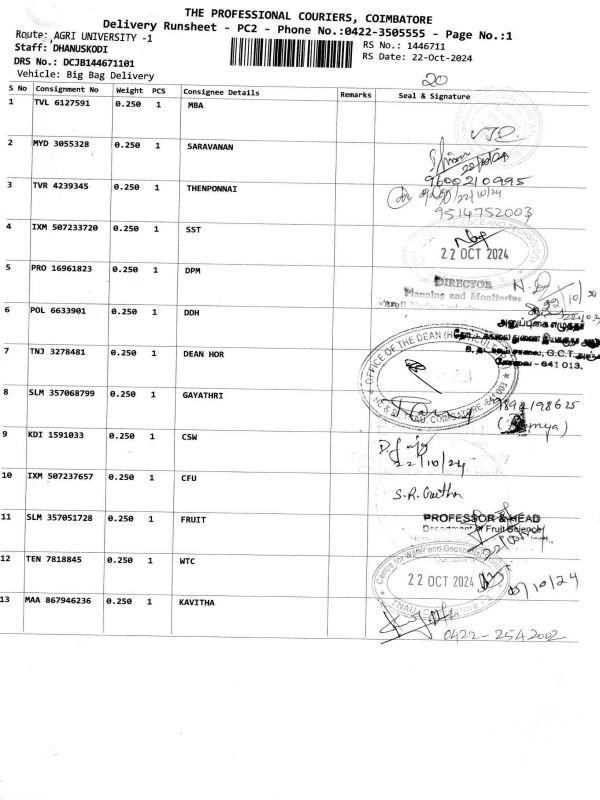 THE PROFESSIONAL COURIERS, COIMBATORE
Delivery Runsheet - PC2 - Phone No.:0422-3505555 - Page No.:1
Route: AGRI UNIVERSITY -1
RS No.: 1446711
Staff: DHANUSKODI
RS Date: 22-Oct-2024
DRS No.: DCJB144671101
Vehicle: Big Bag Delivery
20
S No Consignment No Weight PCS Consignee Details Remarks Seal & Signature
1 TVL 6127591 0.250 1 MBA
2 MYD 3055328 0.250 1 SARAVANAN
22/10/24
9600210995
3 TVR 4239345 0.250 1 THENPONNAI
22/10/24
9514752003
4 IXM 507233720 0.250 1 SST
22 OCT 2024
5 PRO 16961823 0.250 1 DPM
DIRECTOR
Planning and Monitoring
6 POL 6633901 0.250 1 DDH
7 TNJ 3278481 0.250 1 DEAN HOR
OFFICE OF THE DEAN
G.C.T.
- 641 013.
8 SLM 357068799 0.250 1 GAYATHRI
9894198625
9 KDI 1591033 0.250 1 CSW
22/10/24
10 IXM 507237657 0.250 1 CFU
S.R.
11 SLM 357051728 0.250 1 FRUIT
PROFESSOR & HEAD
Department of Fruit Science
12 TEN 7818845 0.250 1 WTC
Centre for Water and
22 OCT 2024
13 MAA 867946236 0.250 1 KAVITHA
0422-2542002